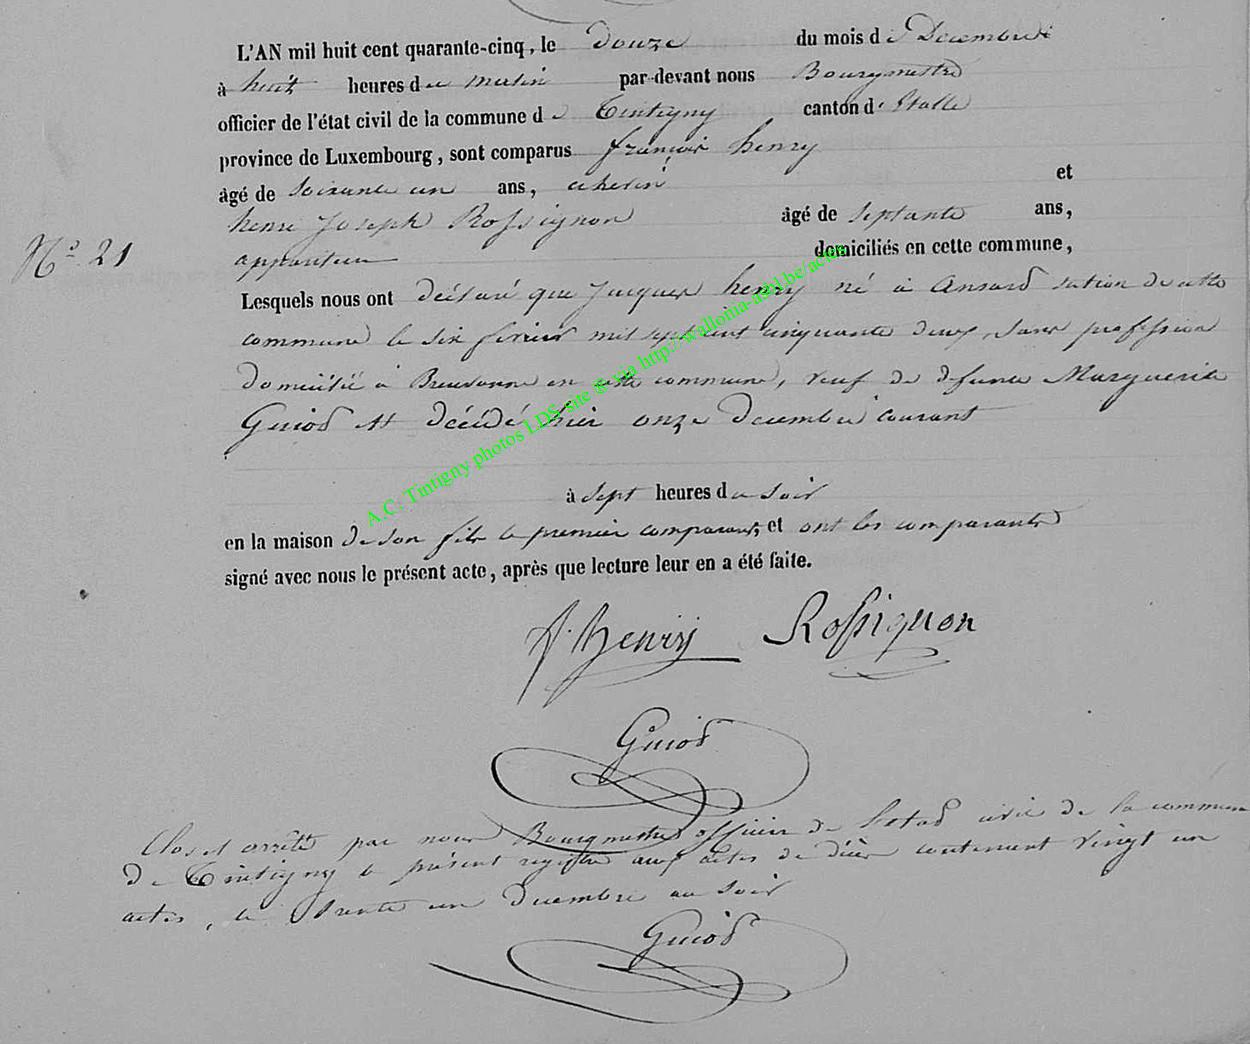 L'AN mil huit cent quarante-cinq, le douze du mois de Decembre
à huit heures du matin par-devant nous Bourgmestre
officier de l'état civil de la commune de Tintigny canton d' Etalle
province de Luxembourg, sont comparus françois henry
âgé de soixante un ans, echevin et
henri Joseph Rossignon âgé de septante ans,
appariteur domiciliés en cette commune,
N.o 21
Lesquels nous ont déclaré que Jacques henry né à Ansard section de cette
commune le six fevrier mil sept cent cinquante deux, sans profession
domicilié à Breuvanne en cette commune, veuf de défunte Marguerite
Guiod est décédé hier onze decembre courant
à sept heures du soir
en la maison de son fils le premier comparant, et ont les comparants
signé avec nous le présent acte, après que lecture leur en a été faite.
f. henry Rossignon
Guiod
Clos et arrêté par nous Bourgmestre officier de l'etat civil de la commune
de Tintigny le présent registre aux actes de décès contenant vingt un
actes, le trente un decembre au soir
Guiod
A.C. Tintigny photos LDS site & via http://wallonia-asbl.be/actes